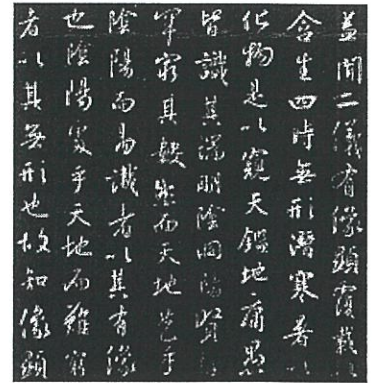 蓋聞二儀有像顯覆載以
含生四時無形潛寒暑以
化物是以窺天鑑地庸愚
皆識其端明陰洞陽賢
罕窮其數然而天地苞乎
陰陽而易識者以其有像
也陰陽處乎天地而難窮
者以其無形也故知像顯